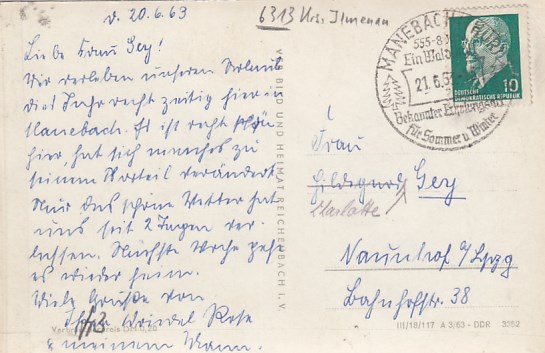 d. 20.6.63
6313 Krs. Ilmenau
Liebe Frau Gey!
Wir verleben unseren Urlaub
dies Jahr recht zeitig hier in
Manebach. Es ist recht schön
hier, hat sich manches zu
seinem Vorteil verändert.
Nur das schöne Wetter hat
uns seit 2 Tagen ver-
lassen. Nächste Woche geht
es wieder heim.
Viele Grüße von
Ihrer Rose
u. meinem Mann.
VEB BILD UND HEIMAT REICHENBACH I. V.
MANEBACH
555-8
Ein Wald
21.6.63
Bekannter Erholungsort
für Sommer u. Winter
10
DEUTSCHE
DEMOKRATISCHE REPUBLIK
Frau
Hildegard Gey
Charlotte
Naunhof b/Lpzg
Bahnhofstr. 38
III/18/117 A 3/63 - DDR 3352